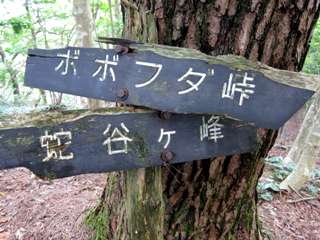 ボボフダ峠
蛇谷ヶ峰